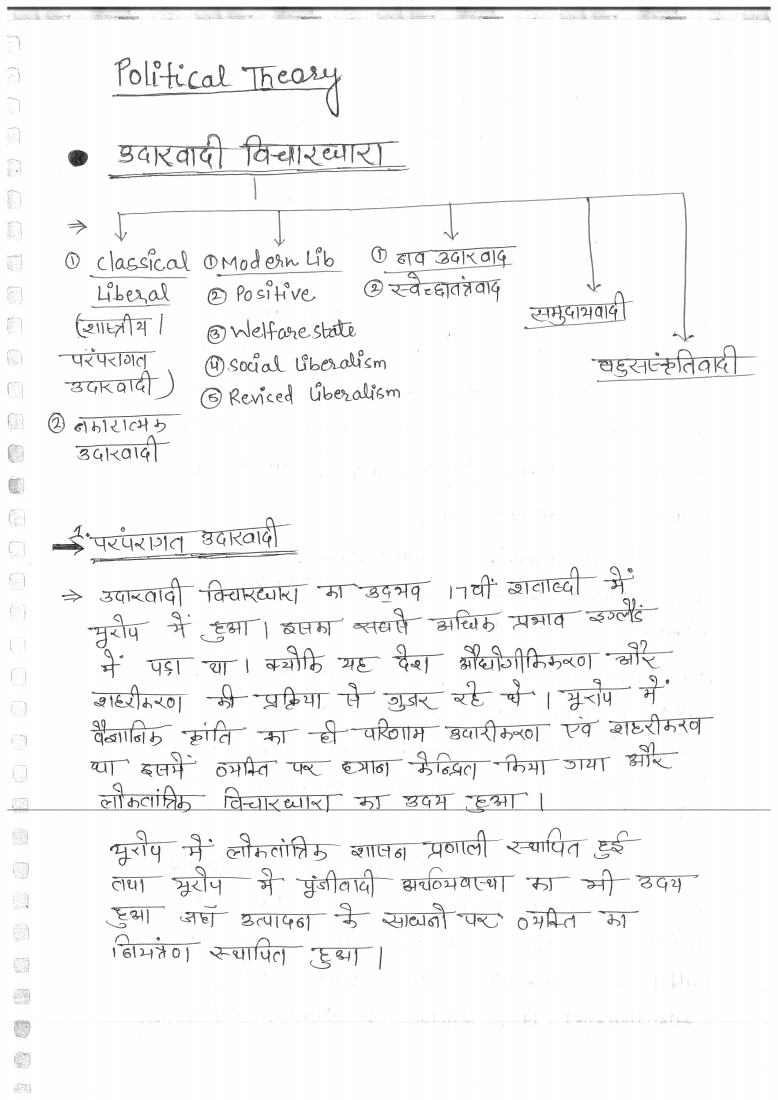 Political Theory
● उदारवादी विचारधारा
⇒
① Classical Liberal (शास्त्रीय / परंपरागत उदारवादी)
② नकारात्मक उदारवादी
① Modern Lib
② Positive
③ Welfare state
④ Social Liberalism
⑤ Reviced Liberalism
① नव उदारवाद
② स्वेच्छातंत्रवाद
समुदायवादी
बहुसंस्कृतिवादी
→ 1. परंपरागत उदारवादी
⇒ उदारवादी विचारधारा का उद्भव 17वीं शताब्दी में
यूरोप में हुआ। इसका सबसे अधिक प्रभाव इंग्लैंड
में पड़ा था। क्योकि यह देश औद्योगीकिकरण और
शहरीकरण की प्रक्रिया से गुजर रहे थे। यूरोप में
वैज्ञानिक क्रांति का ही परिणाम उदारीकरण एवं शहरीकरण
था इसमें व्यक्ति पर ध्यान केन्द्रित किया गया और
लोकतांत्रिक विचारधारा का उदय हुआ।
यूरोप में लोकतांत्रिक शासन प्रणाली स्थापित हुई
तथा यूरोप मे पूंजीवादी अर्थव्यवस्था का भी उदय
हुआ जहाँ उत्पादन के साधनो पर व्यक्ति का
नियंत्रण स्थापित हुआ।